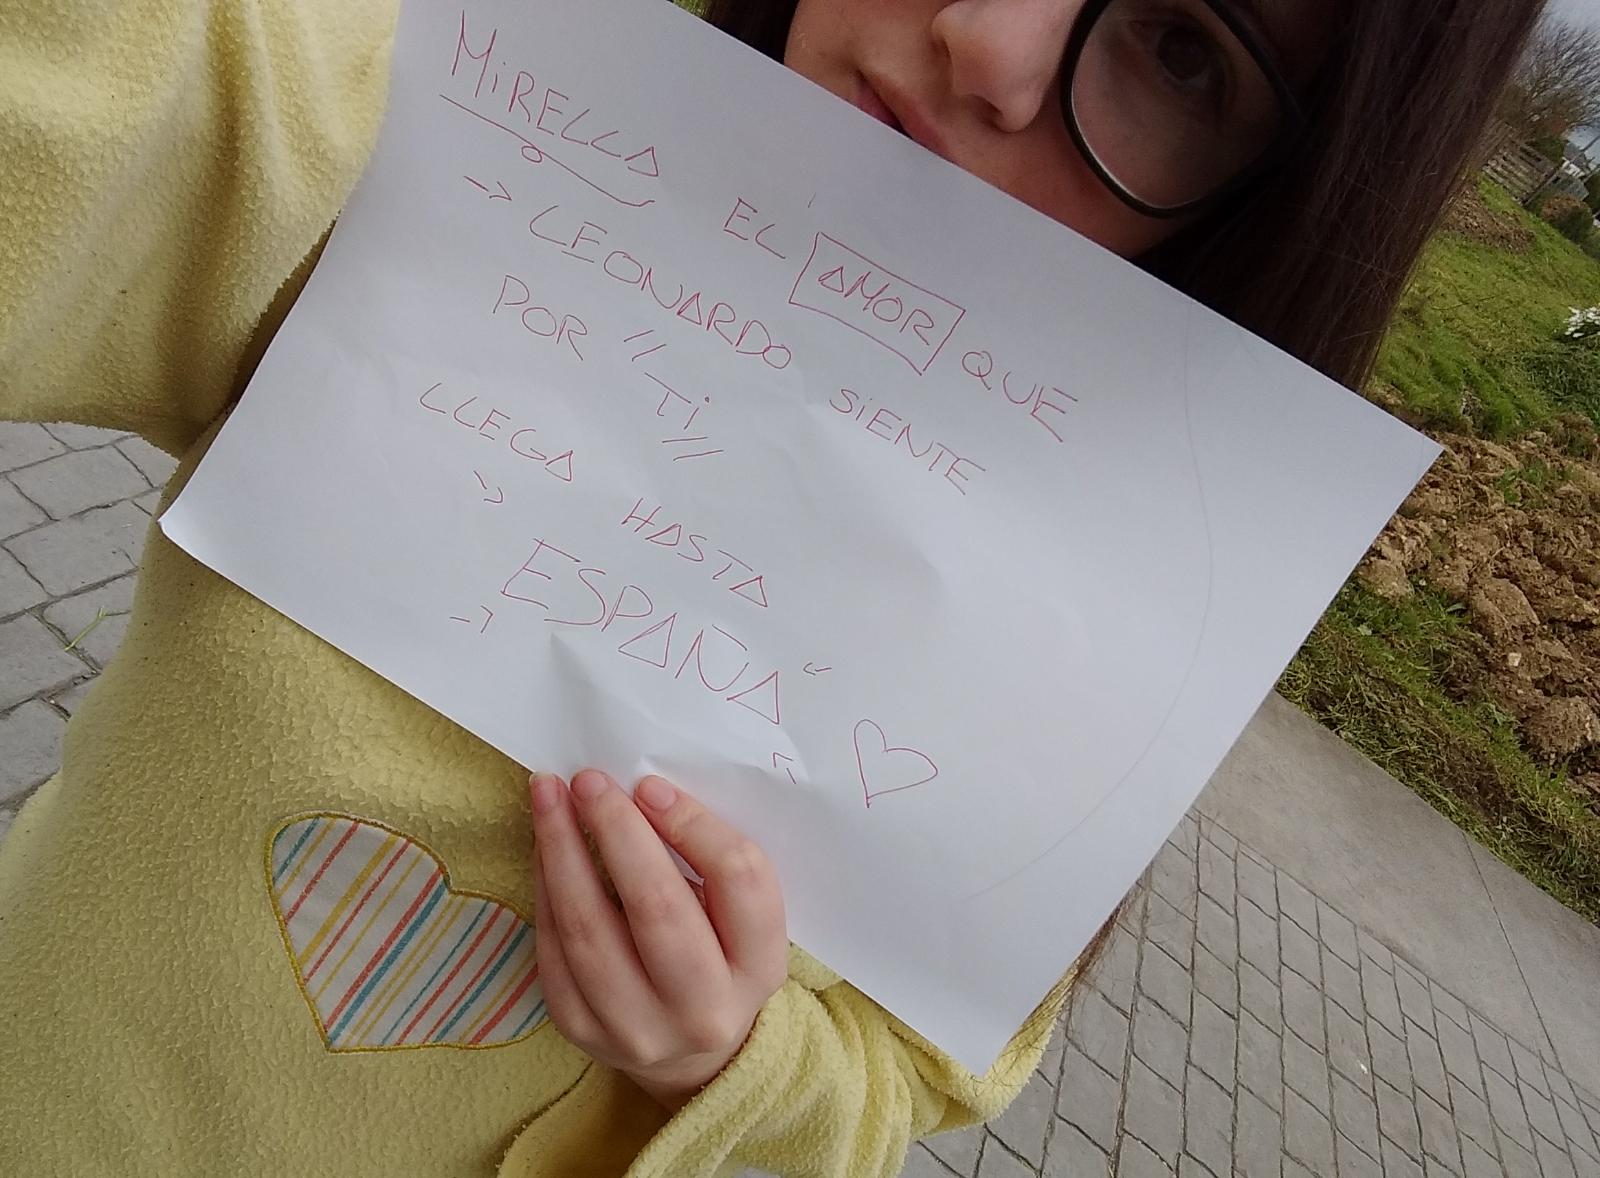 MiRELLA
EL AMOR QUE
LEONARDO SiENTE
POR "Ti"
LLEGA HASTA
ESPAÑA